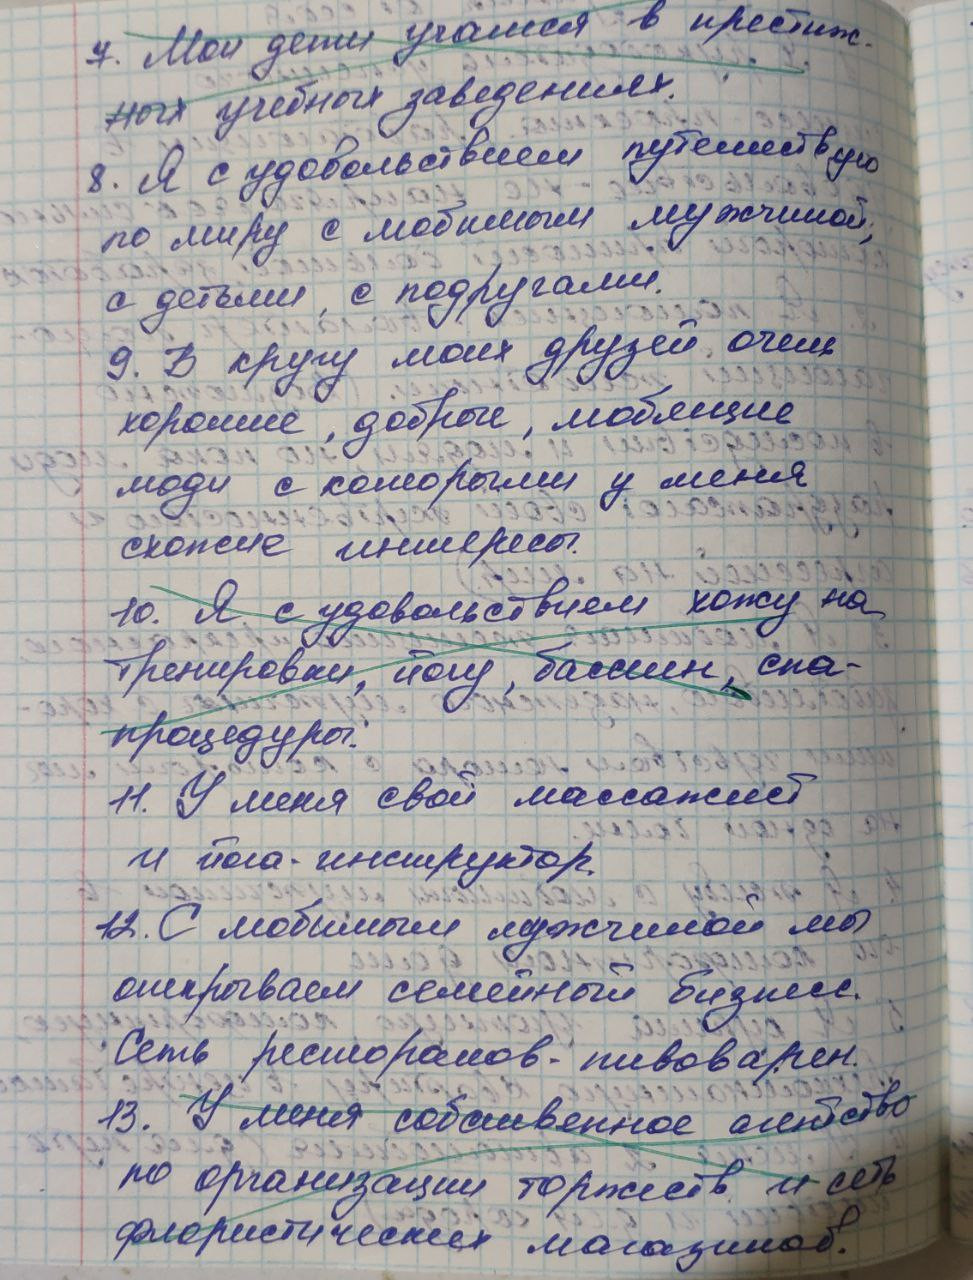 7. Мои дети учатся в престиж-
ных учебных заведениях.
8. Я с удовольствием путешествую
по миру с любимым мужчиной,
с детьми, с подругами.
9. В кругу моих друзей очень
хорошие, добрые, любящие
люди с которыми у меня
схожие интересы.
10. Я с удовольствием хожу на
тренировки, йогу, бассейн, спа-
процедуры.
11. У меня свой массажист
и йога-инструктор.
12. С любимым мужчиной мы
открываем семейный бизнес.
Сеть ресторанов-пивоварен.
13. У меня собственное агентство
по организации торжеств и сеть
флористических магазинов.